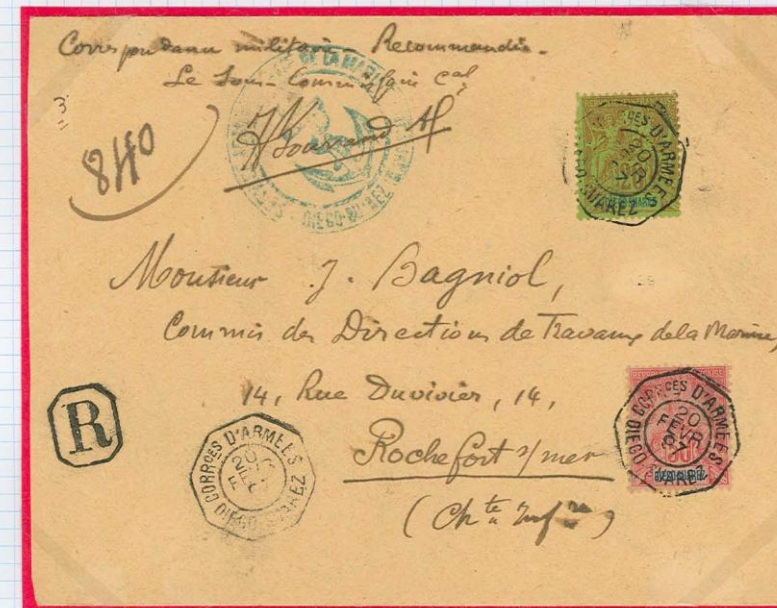 Correspondance militaire - Recommandée.
Le Sous-Commissaire
3
840
DE LA MARINE
DIEGO-SUAREZ
CORRces D'ARMÉES
20
DIEGO-SUAREZ
Monsieur J. Bagniol,
Commis des Directions de Travaux de la Marine,
14, Rue Duvivier, 14,
Rochefort s/mer
(Chte Infre)
R
CORRces D'ARMÉES
20
FEVR
DIEGO SUAREZ
CORRces D'ARMÉES
20
DIEGO-SUAREZ